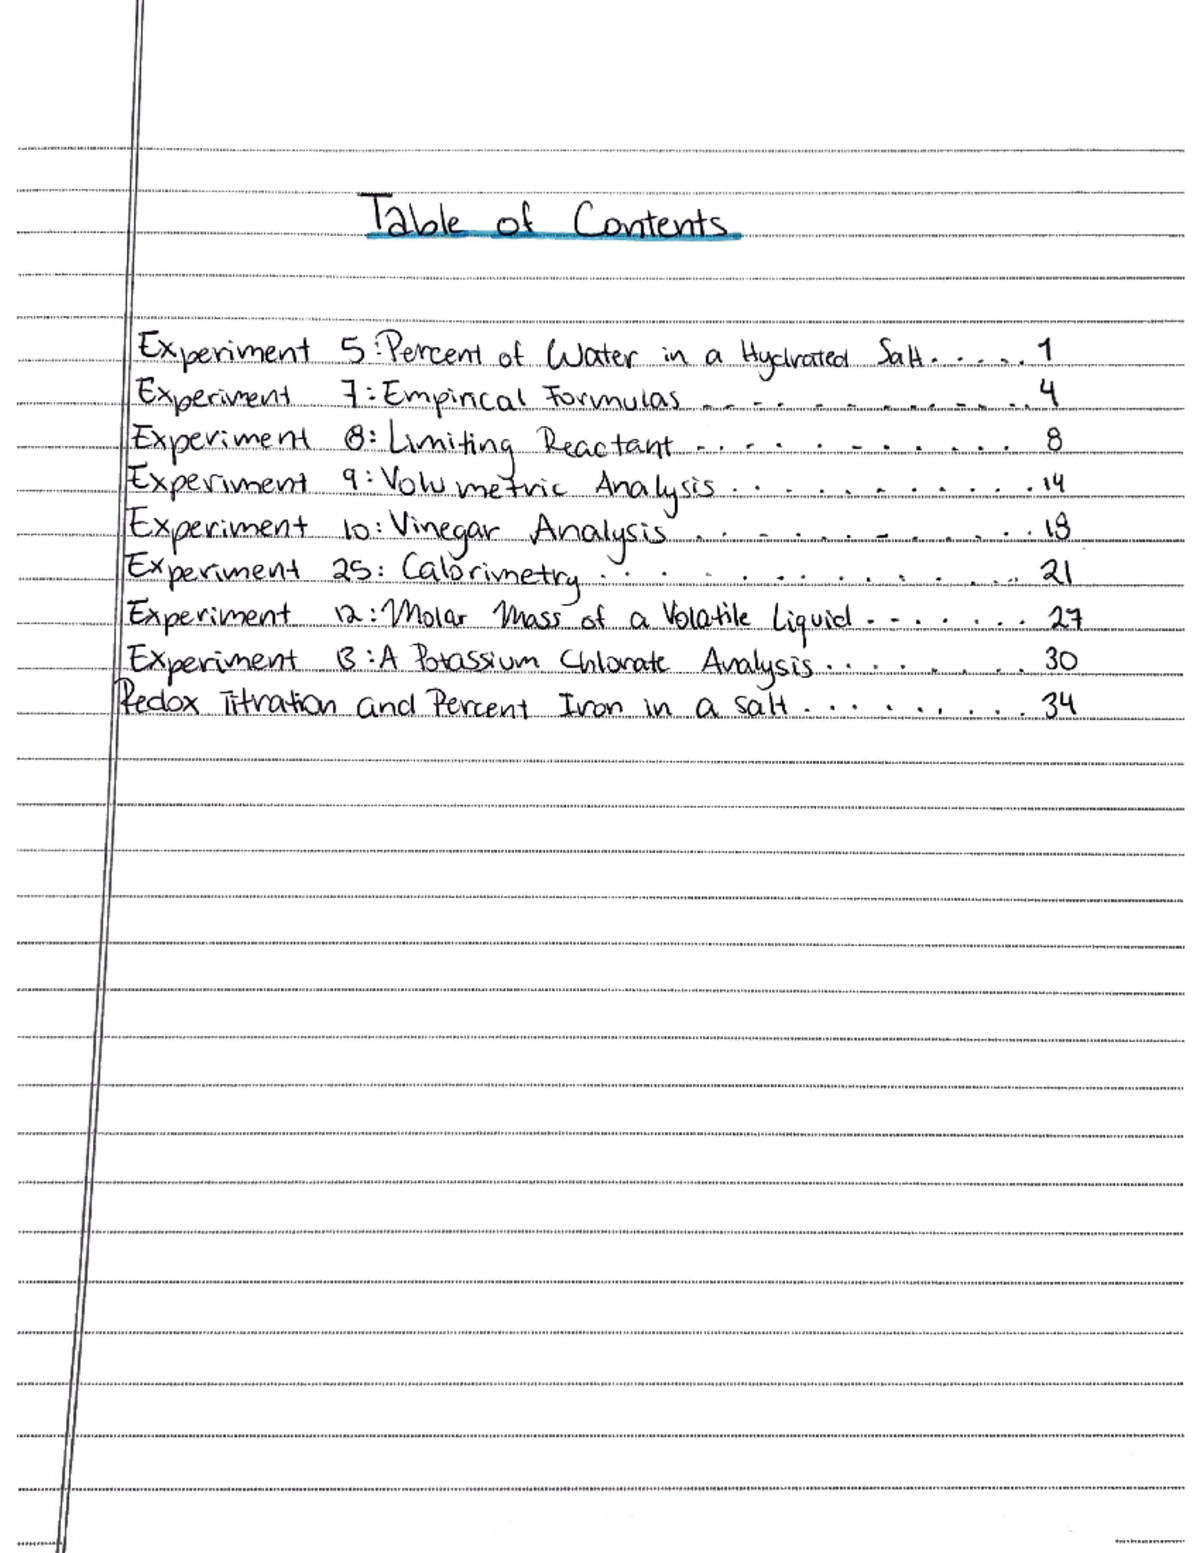 Table of Contents
Experiment 5:Percent of Water in a Hydrated Salt. . . . . . 1
Experiment 7:Empirical Formulas . . . . . . . . . . . . . . 4
Experiment 8:Limiting Reactant . . . . . . . . . . . 8
Experiment 9:Volumetric Analysis . . . . . . . . . . . 14
Experiment 10:Vinegar Analysis . . . . . . . . . . . . 18
Experiment 25: Calorimetry . . . . . . . . . . . . . . 21
Experiment 12:Molar Mass of a Volatile Liquid . . . . . . . 27
Experiment 13:A Potassium Chlorate Analysis . . . . . . . . 30
Redox Titration and Percent Iron in a salt . . . . . . . . . 34